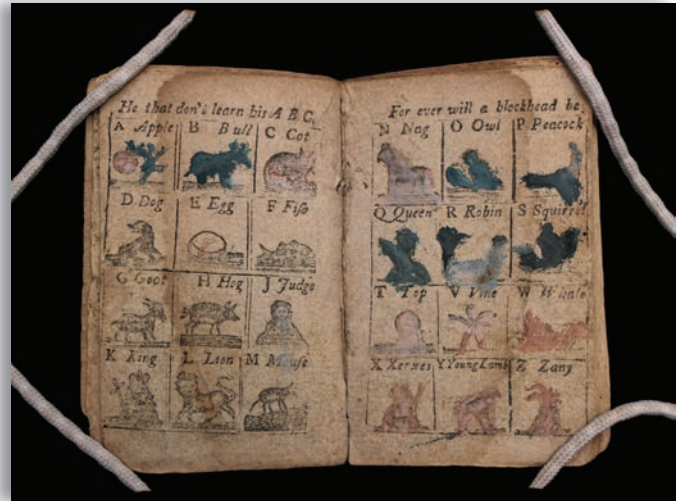 He that don't learn his A B C,
A Apple B Bull C Cat
D Dog E Egg F Fish
G Goat H Hog J Judge
K King L Lion M Mouse
For ever will a blockhead be.
N Nag O Owl P Peacock
Q Queen R Robin S Squirrel
T Top V Vine W Whale
X Xerxes Y Young Lamb Z Zany